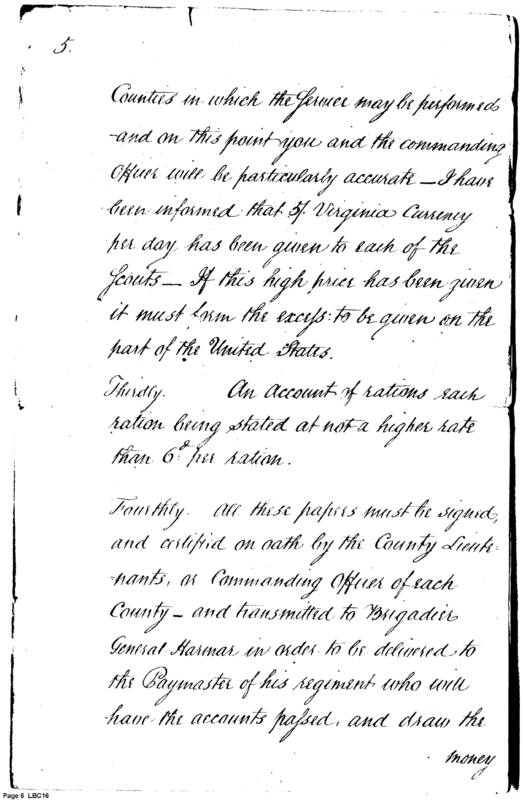 5.
Counties in which the Service may be performed
and on this point you and the commanding
Officer will be particularly accurate — I have
been informed that 5/. Virginia Currency
per day has been given to each of the
Scouts — If this high price has been given
it must form the excess to be given on the
part of the United States.
Thirdly. An Account of rations each
ration being stated at not a higher rate
than 6d. per ration.
Fourthly. All these papers must be signed,
and certified on oath by the County Lieute-
nants, or Commanding Officer of each
County — and transmitted to Brigadier
General Harmar in order to be delivered to
the Paymaster of his regiment who will
have the accounts passed, and draw the
money
Page 6 LBC16